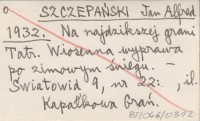 o SZCZEPAŃSKI Jan Alfred
1932. Na najdzikszej grani
Tatr. Wiosenna wyprawa
po zimowym śniegu. –
Światowid 9, nr 22: , il.
Kapałkowa Grań.
BT/046/0372